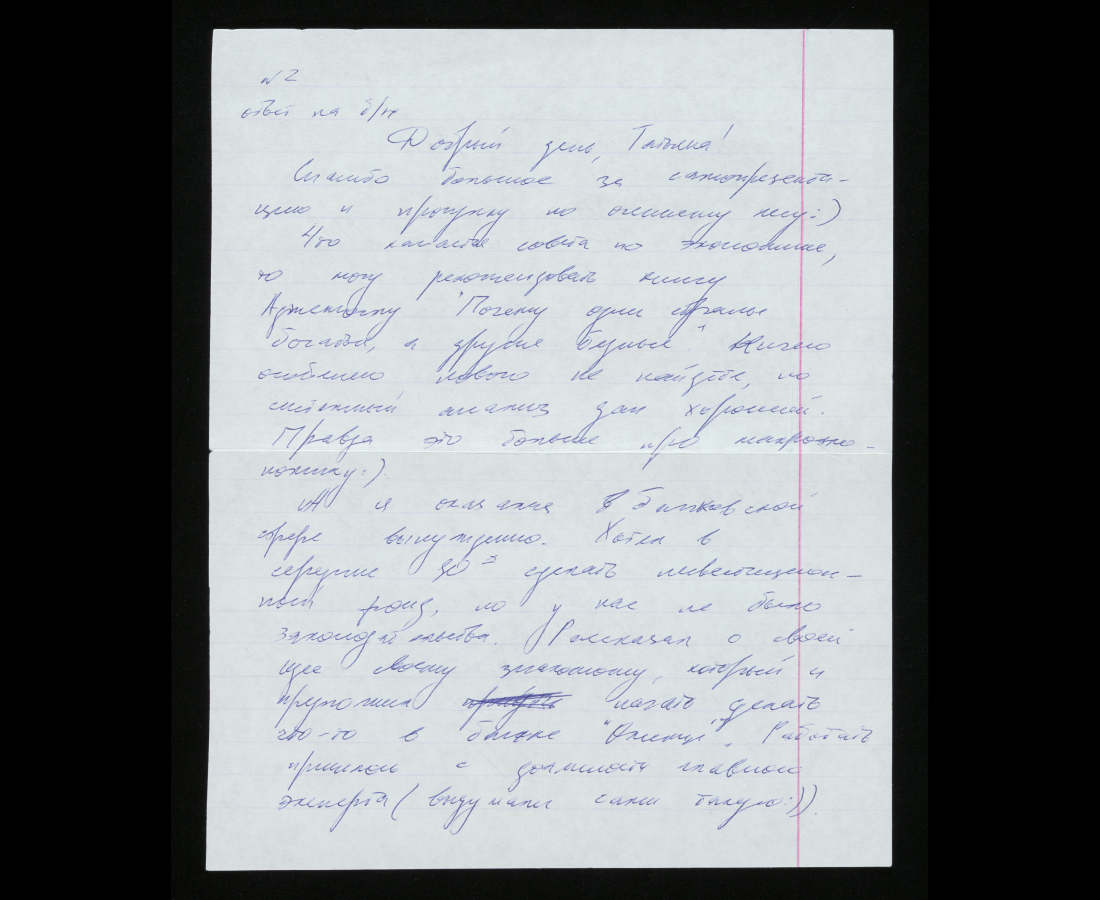 №2
ответ на б/н
Добрый день, Татьяна!
Спасибо большое за самопрезента-
цию и прогулку по осеннему лесу:)
Что касается совета по экономике,
то могу рекомендовать книгу
Аджемоглу "Почему одни страны
богатые, а другие бедные". Ничего
особенно нового не найдете, но
системный анализ дан хороший.
Правда это больше про макроэко-
номику:).
А я оказался в банковской
сфере вынужденно. Хотел в
середине 90х сделать инвестицион-
ный фонд, но у нас не было
законодательства. Рассказал о своей
идее своему знакомому, который и
предложил начать делать
что-то в банке Работать
пришлось с должности главного
эксперта (выдумали сами такую:)).